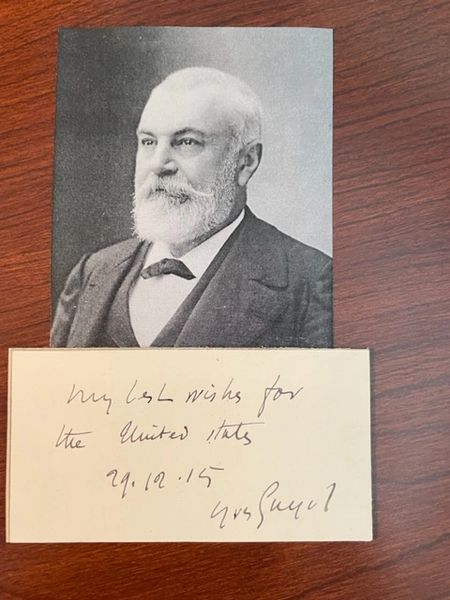 My best wishes for
the United states
29.12.15
Yves Guyot